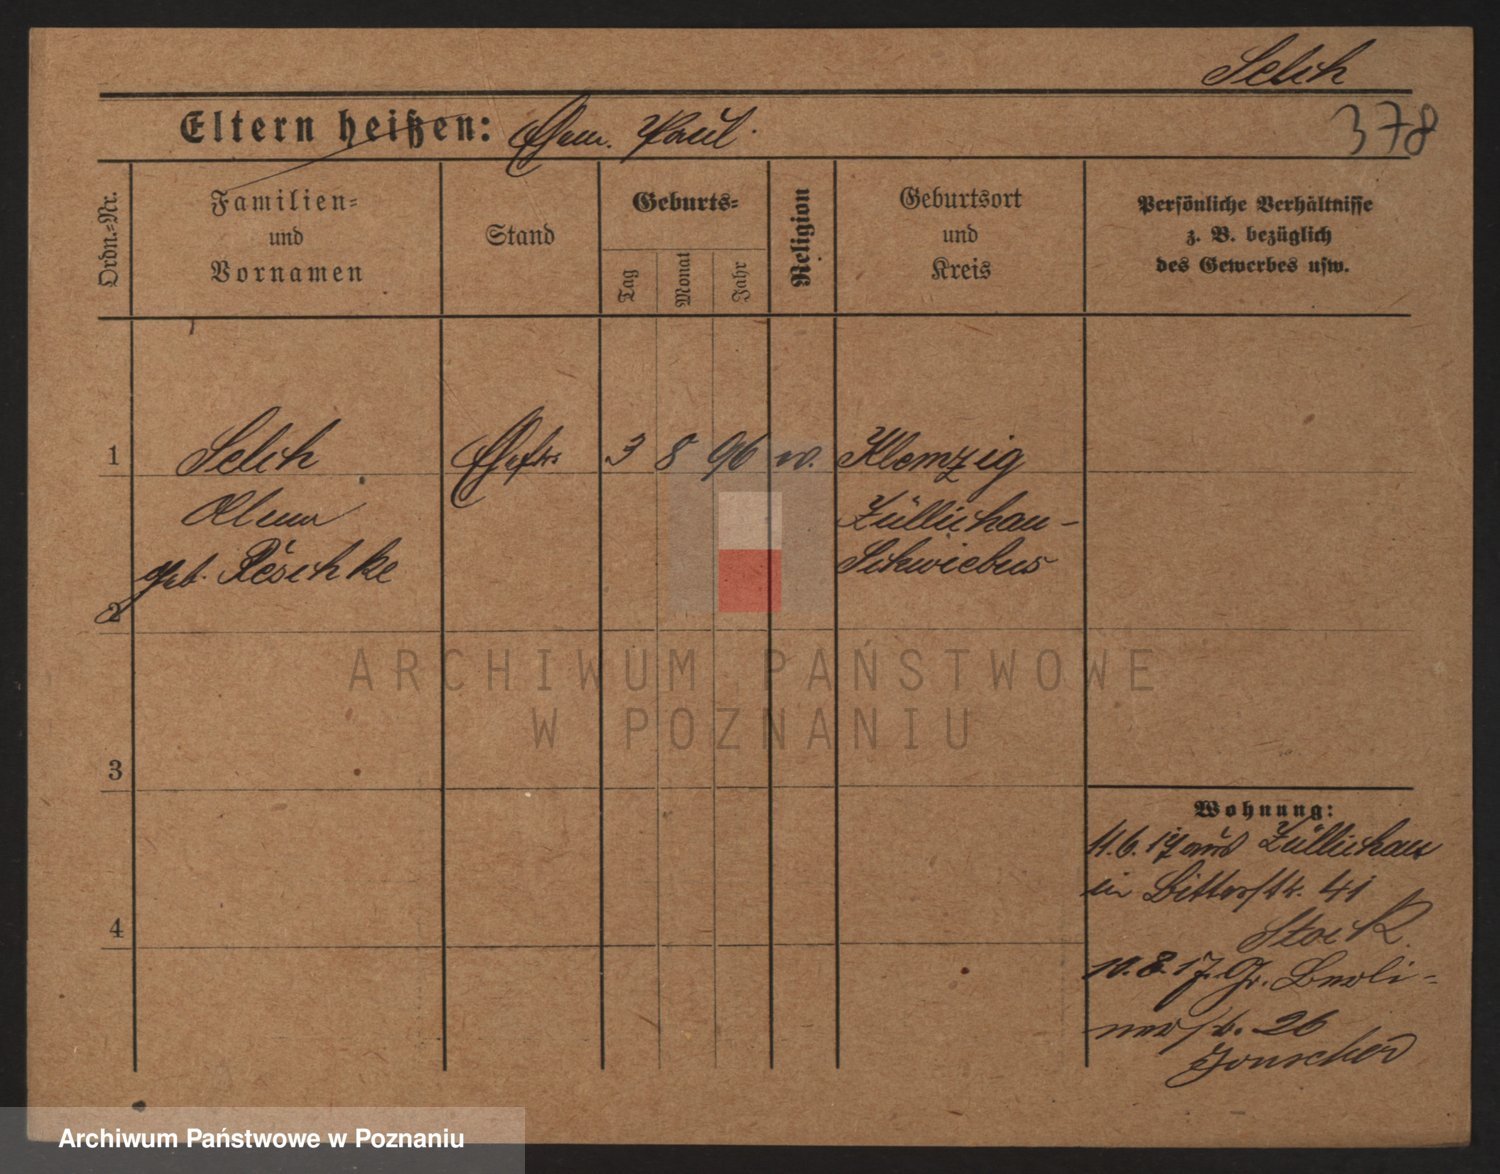 Selch
Eltern heißen: Ehem. Paul.
378
Ordn.-Nr.
Familien-
und
Vornamen
Stand
Geburts-
Tag
Monat
Jahr
Religion
Geburtsort
und
Kreis
Persönliche Verhältnisse
z. B. bezüglich
des Gewerbes usw.
1 Selch Ehefr. 3 8 96 ev. Klemzig
Züllichau-
geb. Peschke Schwiebus
2
ARCHIWUM PAŃSTWOWE
W POZNANIU
3
Wohnung:
11.6.17 aus Züllichau
in Bitterstr. 41
4
Stock
10.8.17. Gr. Berli-
nerstr. 26
Archiwum Państwowe w Poznaniu